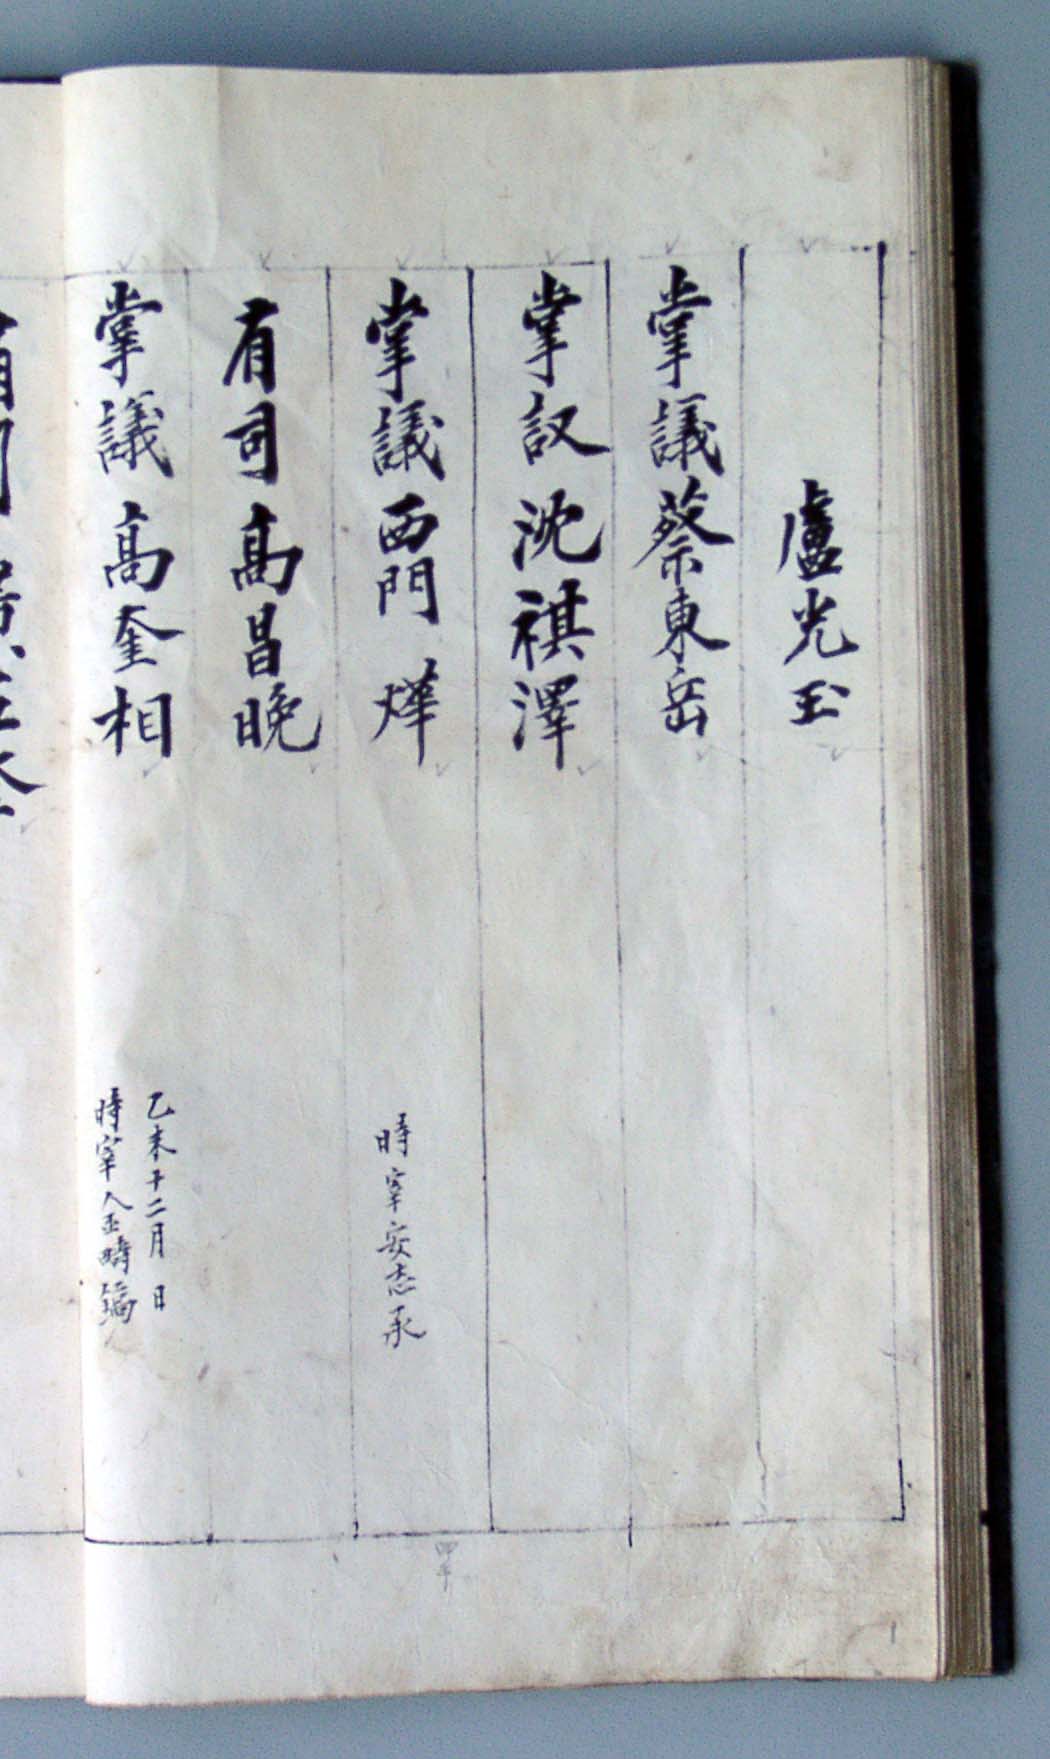 盧光玉
掌議蔡東岳
掌議沈祺澤
掌議西門燁
時宰安志承
有司高昌晩
掌議高奎相
乙未十二月 日
時宰金疇鎬